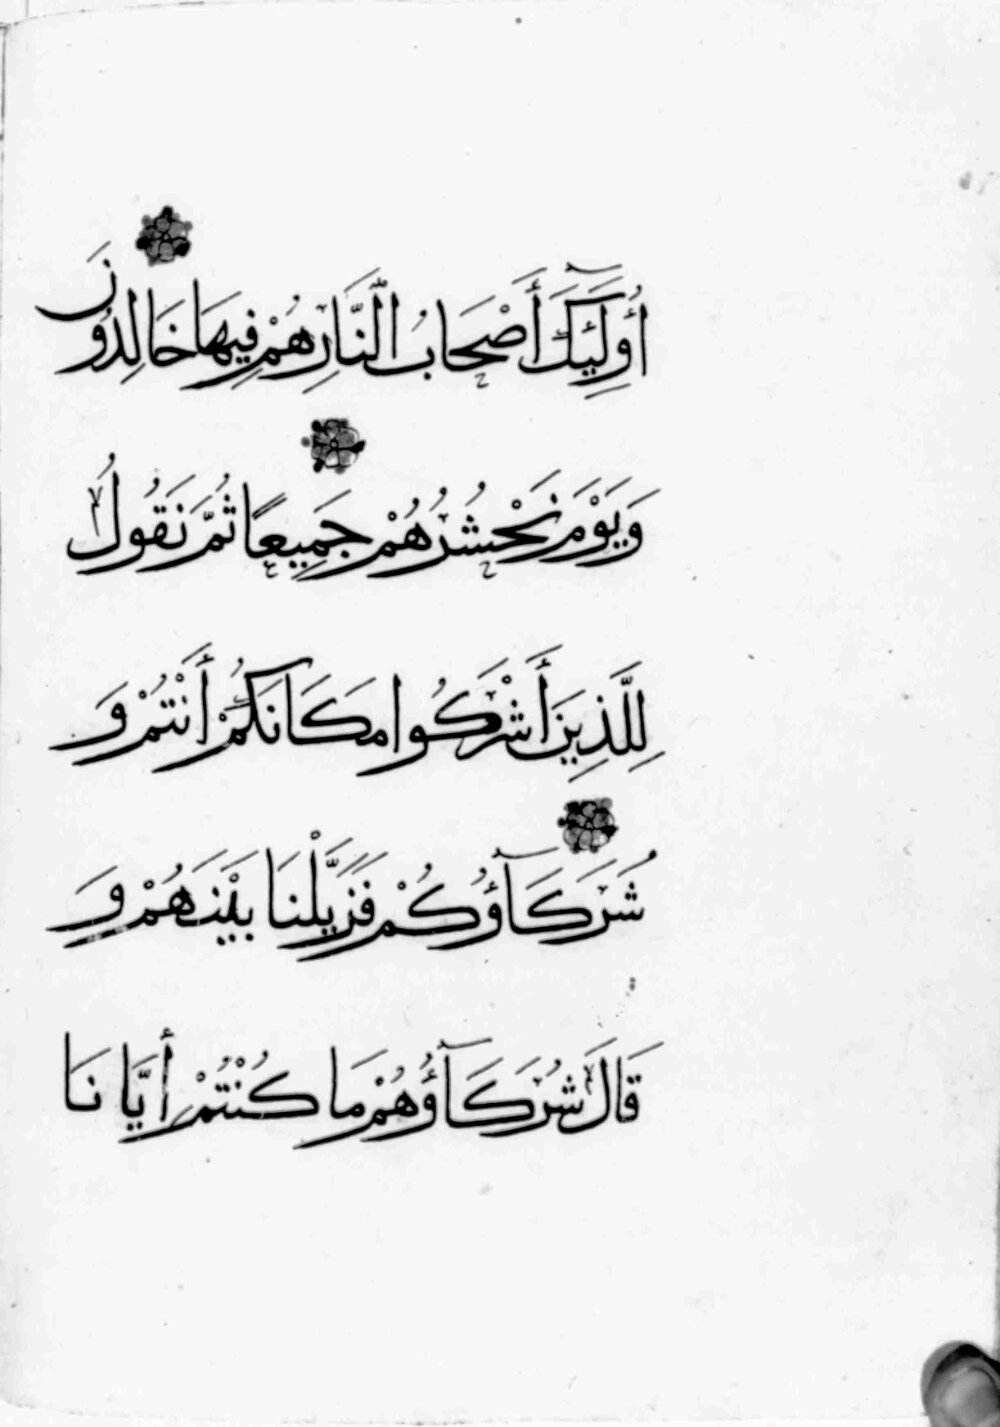 أُولَٰئِكَ أَصْحَابُ النَّارِ هُمْ فِيهَا خَالِدُونَ
وَيَوْمَ نَحْشُرُهُمْ جَمِيعًا ثُمَّ نَقُولُ
لِلَّذِينَ أَشْرَكُوا مَكَانَكُمْ أَنْتُمْ وَ
شُرَكَآؤُكُمْ فَزَيَّلْنَا بَيْنَهُمْ وَ
قَالَ شُرَكَآؤُهُمْ مَا كُنْتُمْ إِيَّانَا